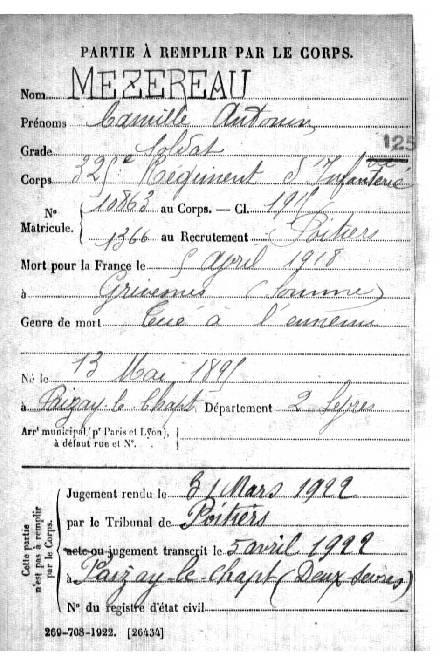 PARTIE À REMPLIR PAR LE CORPS.
Nom MEZEREAU
Prénoms Camille Antonin
Grade Soldat
125
Corps 325e Régiment d'Infanterie
Nº Matricule. 10863 au Corps. — Cl. 1915
1366 au Recrutement Poitiers
Mort pour la France le 5 April 1918
à Grivesnes (Somme)
Genre de mort Tué à l'ennemi
Né le 13 Mai 1895
à Paizay le Chapt Département 2 Sèvres
Arrt municipal (pr Paris et Lyon), à défaut rue et Nº.
Cette partie n'est pas à remplir par le Corps.
Jugement rendu le 31 Mars 1922
par le Tribunal de Poitiers
acte ou jugement transcrit le 5 avril 1922
à Paizay-le-chapt (Deux Sèvres)
Nº du registre d'état civil
269-708-1922. [26434]